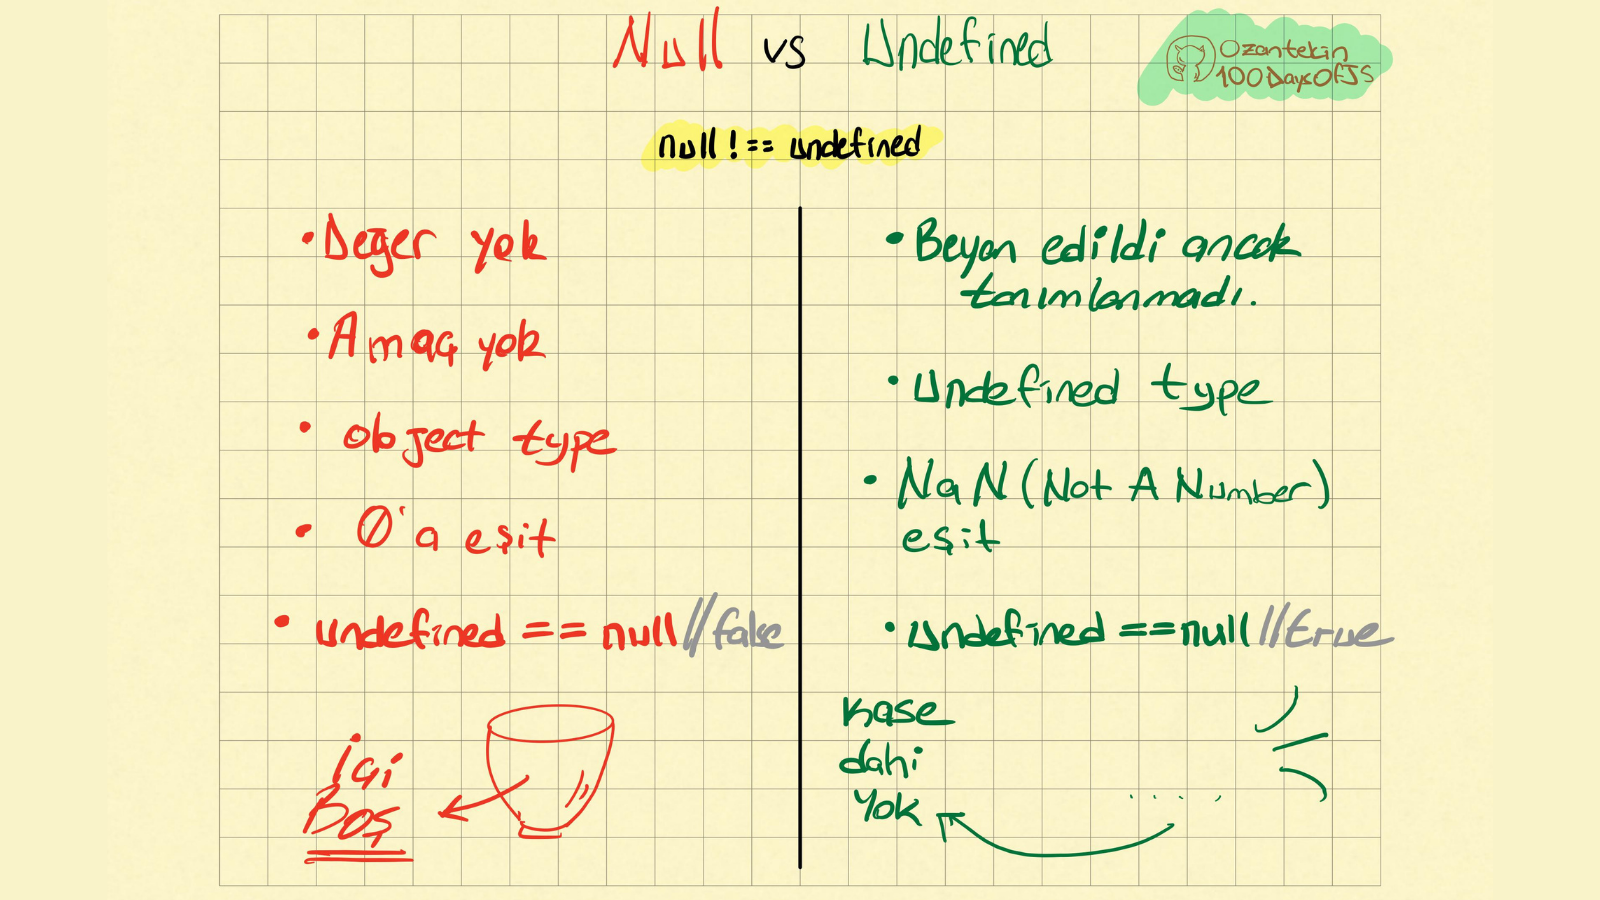 Null vs Undefined
Ozantekin
100DaysOfJS
null !== undefined
• Değer yok
• Amaç yok
• object type
• 0'a eşit
• undefined == null //false
İçi
Boş
• Beyan edildi ancak
tanımlanmadı.
• Undefined type
• NaN (Not A Number)
eşit
• undefined == null //true
Kase
dahi
Yok